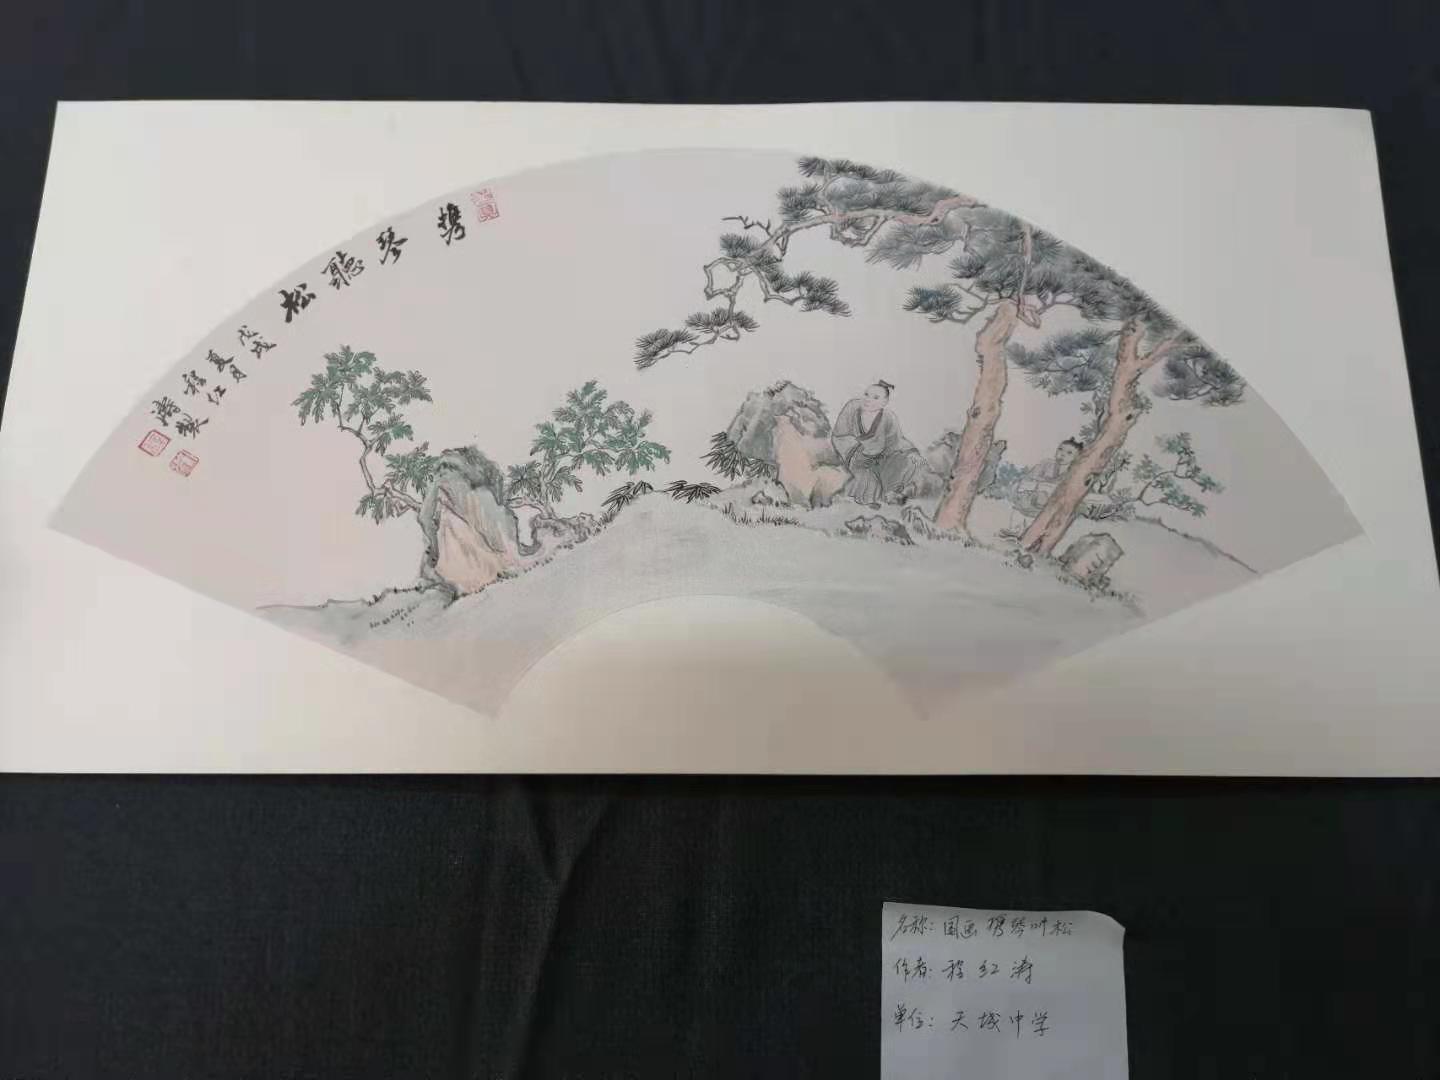 携琴聽松
戊戌
夏月
程红
涛製
名称：国画 携琴听松
作者：程红涛
单位：天城中学